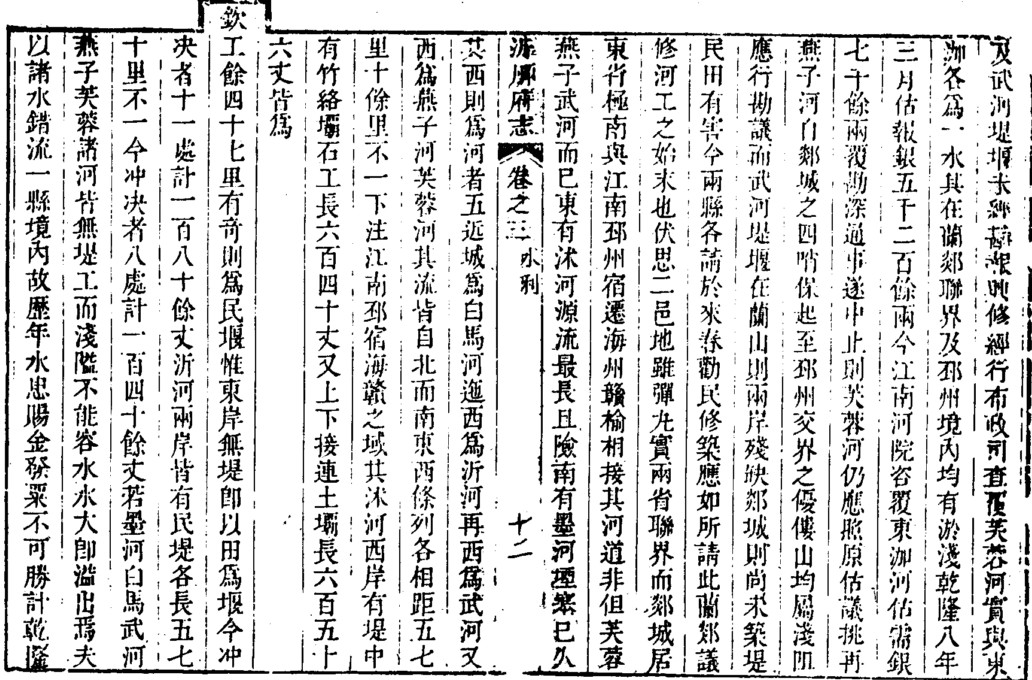 及武河堤堰未經并報映修經行布政司查覆芙蓉河實與東
泇各爲一水其在蘭郯聯界及邳州境內均有淤淺乾隆八年
三月估報銀五千二百餘兩今江南河院咨覆東泇河估需銀
七千餘兩覆勘深通事遂中止則芙蓉河仍應照原估議挑再
燕子河自郯城之四哨保起至邳州交界之優僂山均屬淺阻
應行勘議而武河堤堰在蘭山則兩岸殘缺郯城則尚未築堤
民田有害今兩縣各請於來春勸民修築應如所請此蘭郯議
修河工之始末也伏思二邑地雖彈丸實兩省聯界而郯城居
東省極南與江南邳州宿遷海州贛榆相接其河道非但芙蓉
燕子武河而已東有沭河源流最長且險南有墨河堙塞已久
沂州府志
卷之三 水利
十二
其西則爲河者五近城爲白馬河迤西爲沂河再西爲武河又
西爲燕子河芙蓉河其流皆自北而南東西條列各相距五七
里十餘里不一下注江南邳宿海贛之域其沭河西岸有堤中
有竹絡壩石工長六百四十丈又上下接連土壩長六百五十
六丈皆爲
欽工餘四十七里有奇則爲民堰惟東岸無堤卽以田爲堰今冲
决者十一處計一百八十餘丈沂河兩岸皆有民堤各長五七
十里不一今冲决者八處計一百四十餘丈若墨河白馬武河
燕子芙蓉諸河皆無堤工而淺隘不能容水水大卽溢出焉夫
以諸水錯流一縣境內故歷年水患賜金發粟不可勝計乾隆